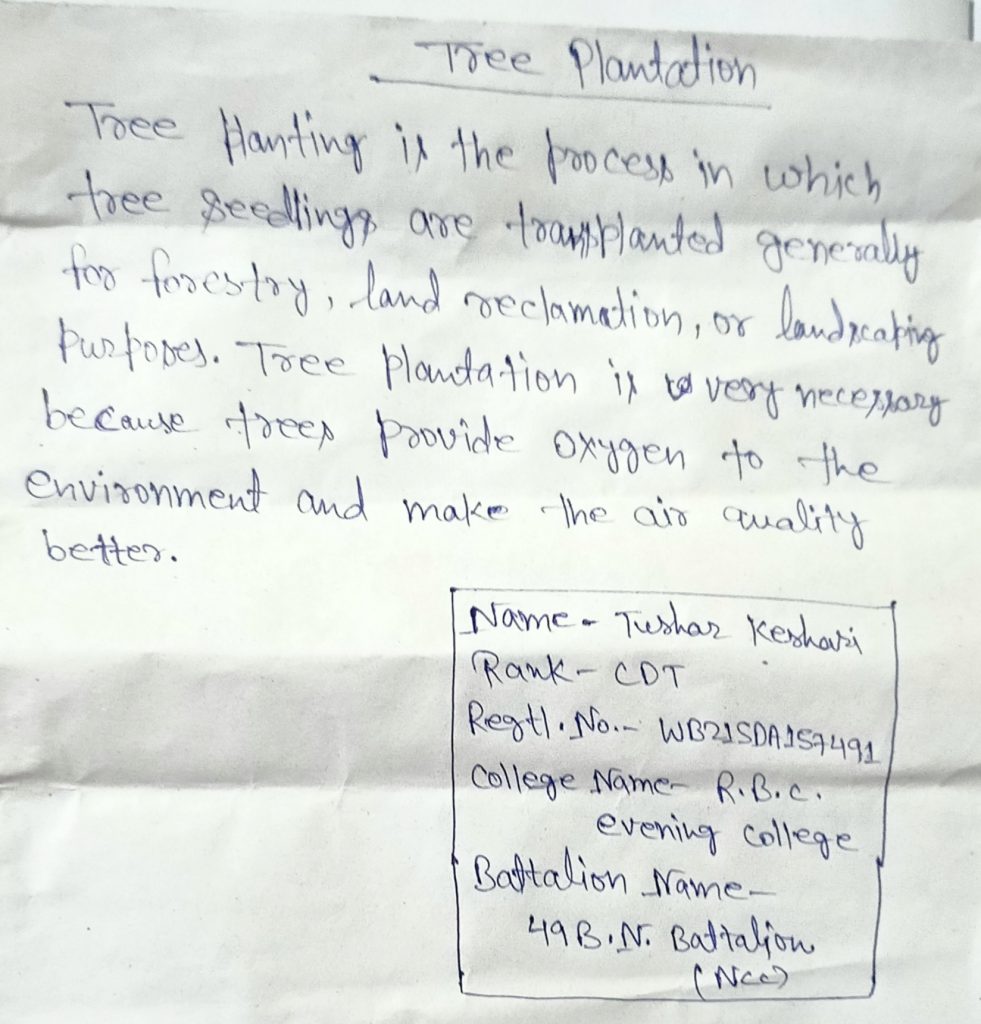 Tree Plantation
Tree Planting is the process in which
tree seedlings are transplanted generally
for forestry, land reclamation, or landscaping
purposes. Tree plantation is very necessary
because trees provide oxygen to the
environment and make the air quality
better.
Name - Tushar Keshari
Rank - CDT
Regtl. No. - WB21SDA157491
College Name - R.B.C.
evening college
Battalion Name -
49 B.N. Battalion
(NCC)